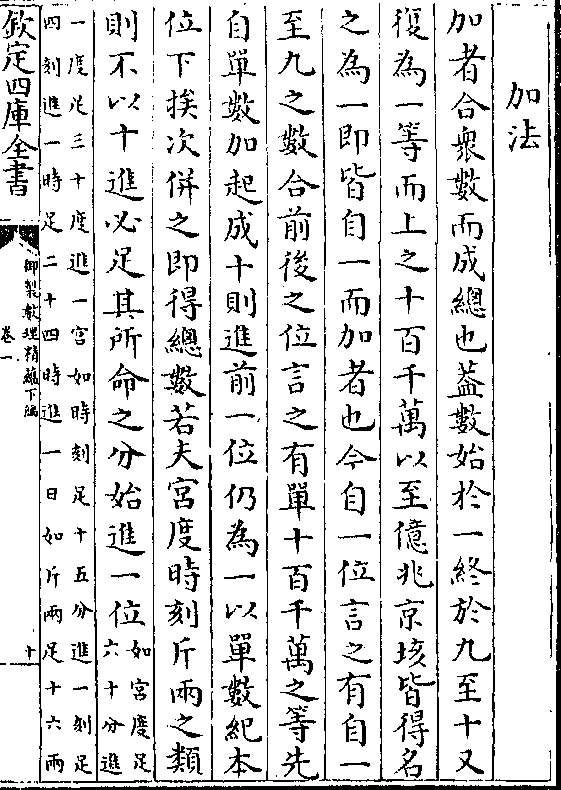 加法
加者合衆數而成總也蓋數始於一終於九至十又
復為一等而上之十百千萬以至億兆京垓皆得名
之為一即皆自一而加者也今自一位言之有自一
至九之數合前後之位言之有單十百千萬之等先
自單數加起成十則進前一位仍為一以單數紀本
位下挨次併之即得總數若夫宮度時刻斤兩之類
則不以十進必足其所命之分始進一位如宮度足六十分進
一度足三十度進一宮如時刻足十五分進一刻足
四刻進一時足二十四時進一日如斤兩足十六兩
欽定四庫全書
御製數理精蘊下編
卷一
十